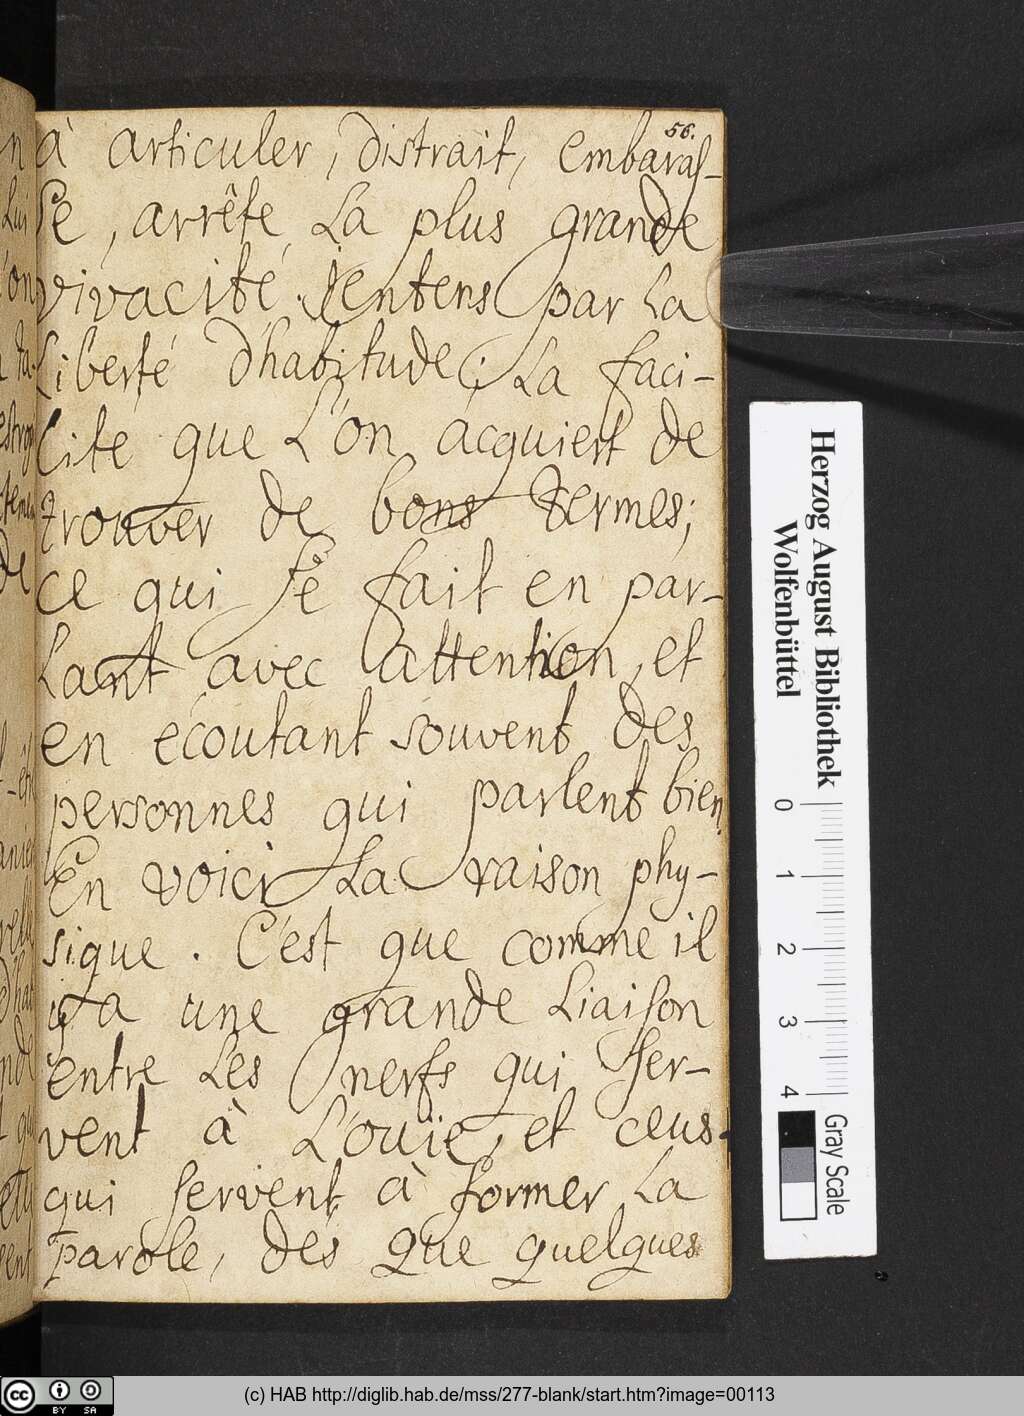 56.
à articuler, distrait, embaras-
se, arrête la plus grande
vivacité. J'entens par la
Liberté d'habitude; La faci-
Lité que L'on acquiert de
trouver de bons termes;
ce qui se fait en par-
Lant avec attention, et
en écoutant souvent des
personnes qui parlent bien.
En voici La raison phy-
sique. C'est que comme il
y a une grande Liaison
entre Les nerfs qui ser-
vent à L'ouïe, et ceus
qui servent à former La
parole, dès que quelques
Herzog August Bibliothek
Wolfenbüttel
0 1 2 3 4
Gray Scale
(c) HAB http://diglib.hab.de/mss/277-blank/start.htm?image=00113
cc BY SA